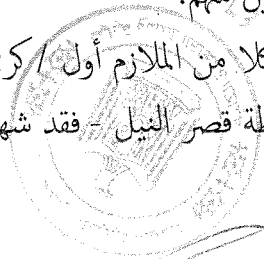 منهم.
كلا من الملازم أول / كر
طة قصر النيل - فقد شه